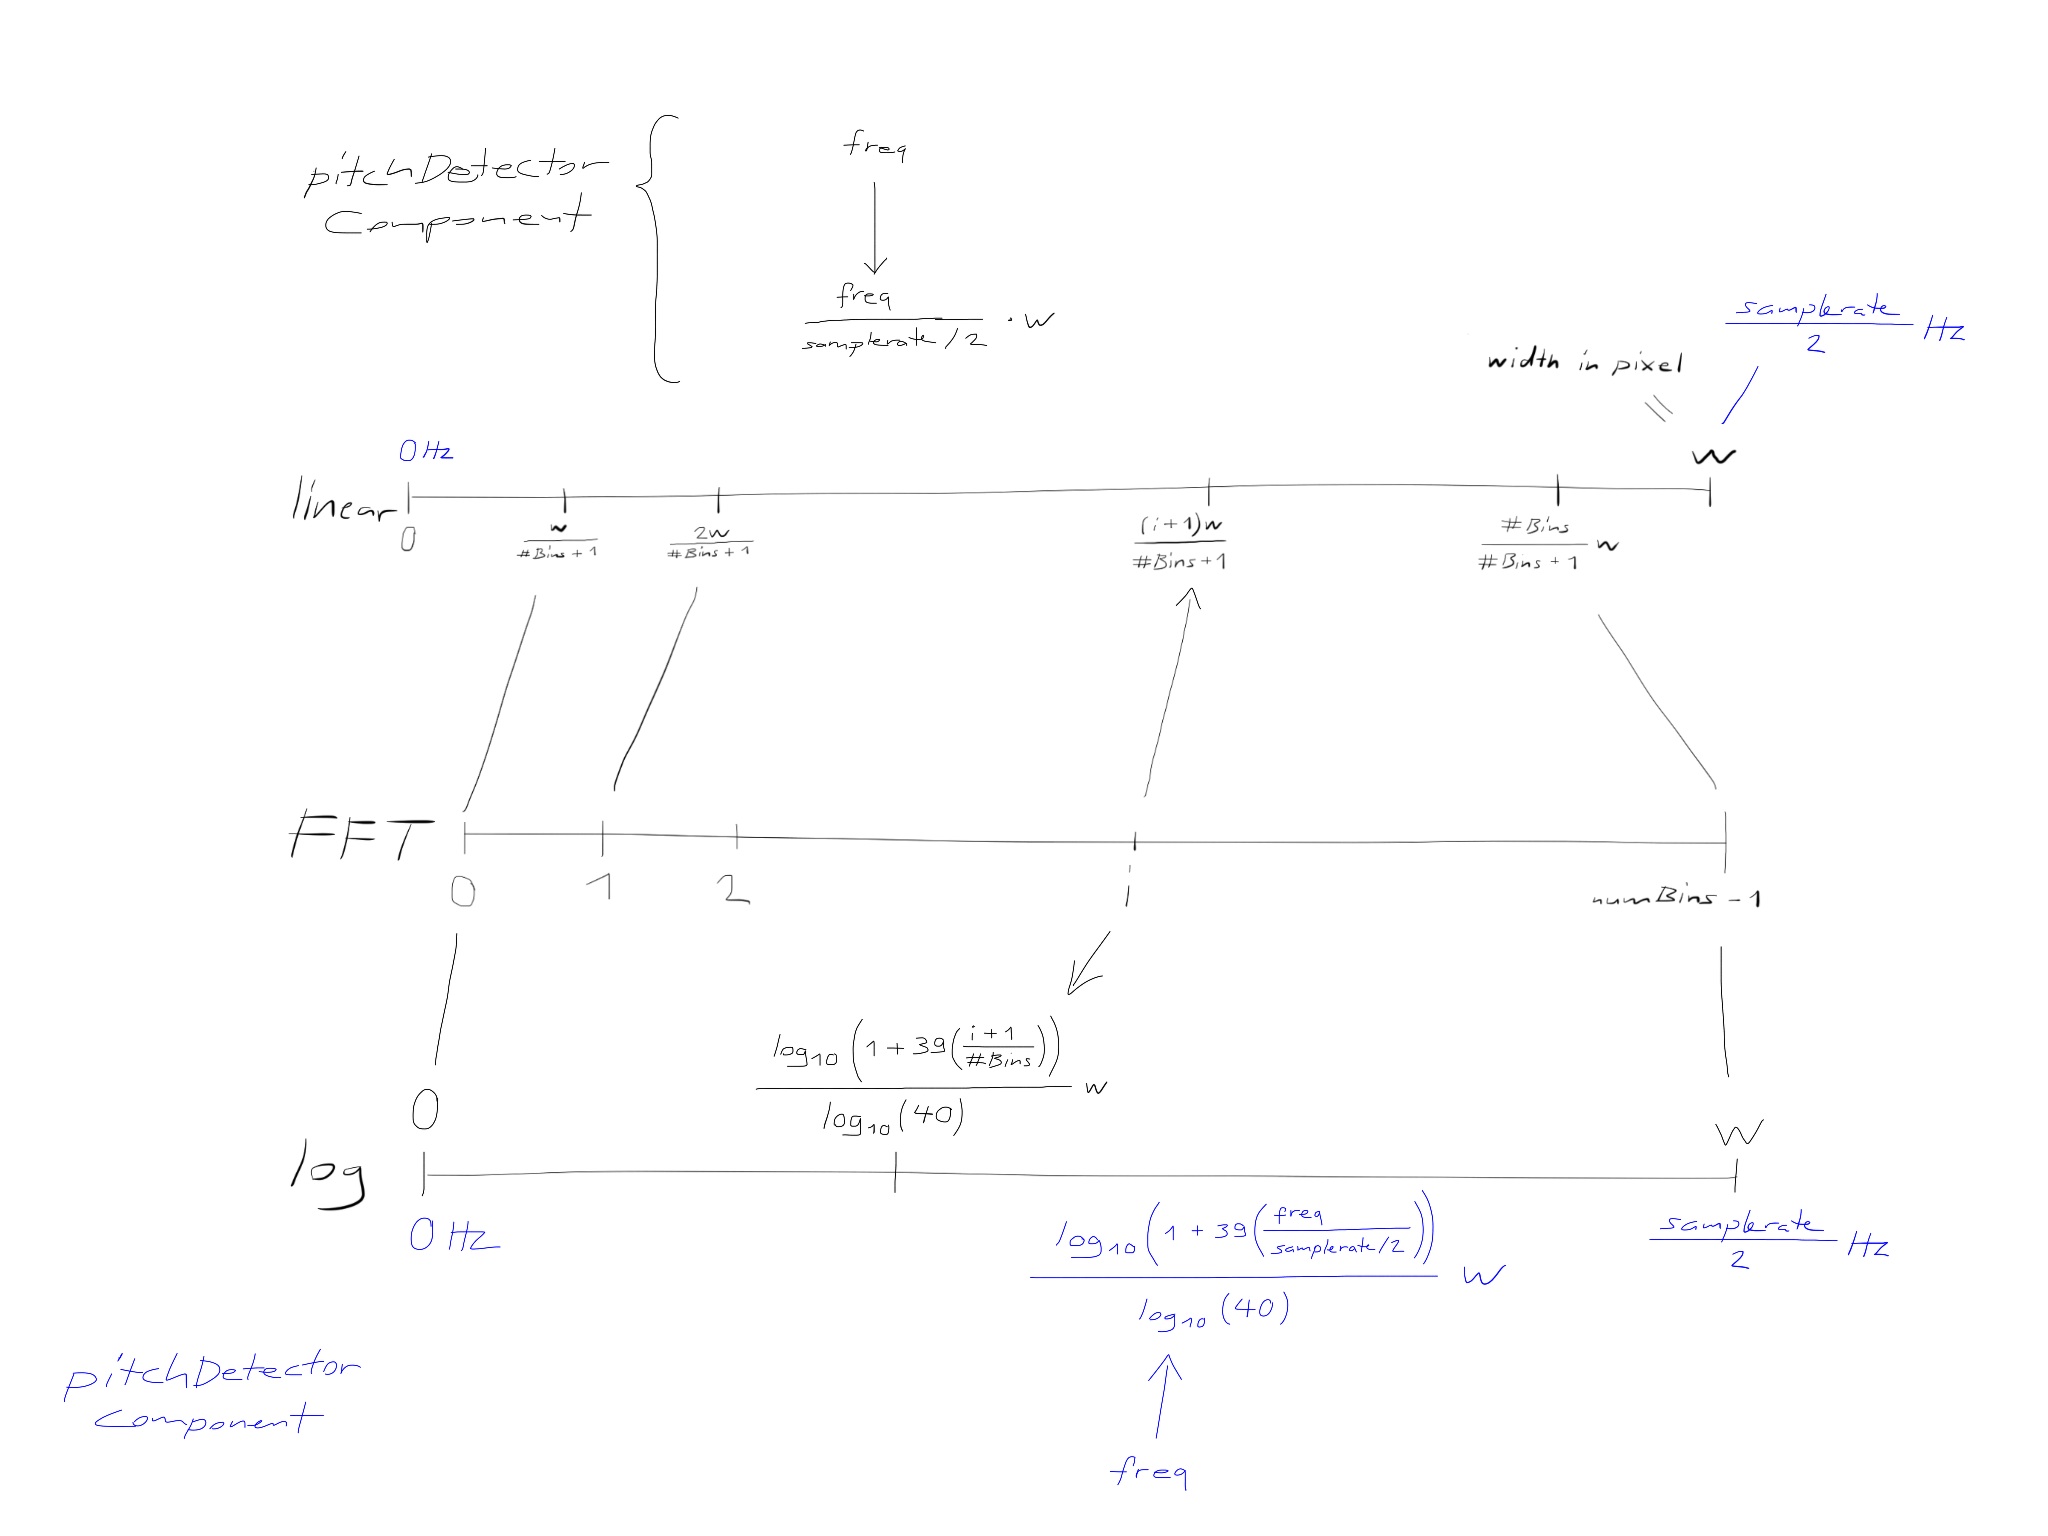 pitchDetector
Component
freq
freq
samplerate/2 · w
samplerate
2 Hz
width in pixel
0 Hz
w
linear
0
w
#Bins + 1
2w
#Bins + 1
(i+1)w
#Bins+1
#Bins
#Bins + 1 w
FFT
0 1 2 i numBins - 1
log10 (1 + 39 (i+1
#Bins))
log10 (40) w
0
w
log
0 Hz
log10 (1 + 39 (freq
samplerate/2))
log10 (40) w
samplerate
2 Hz
pitchDetector
Component
freq